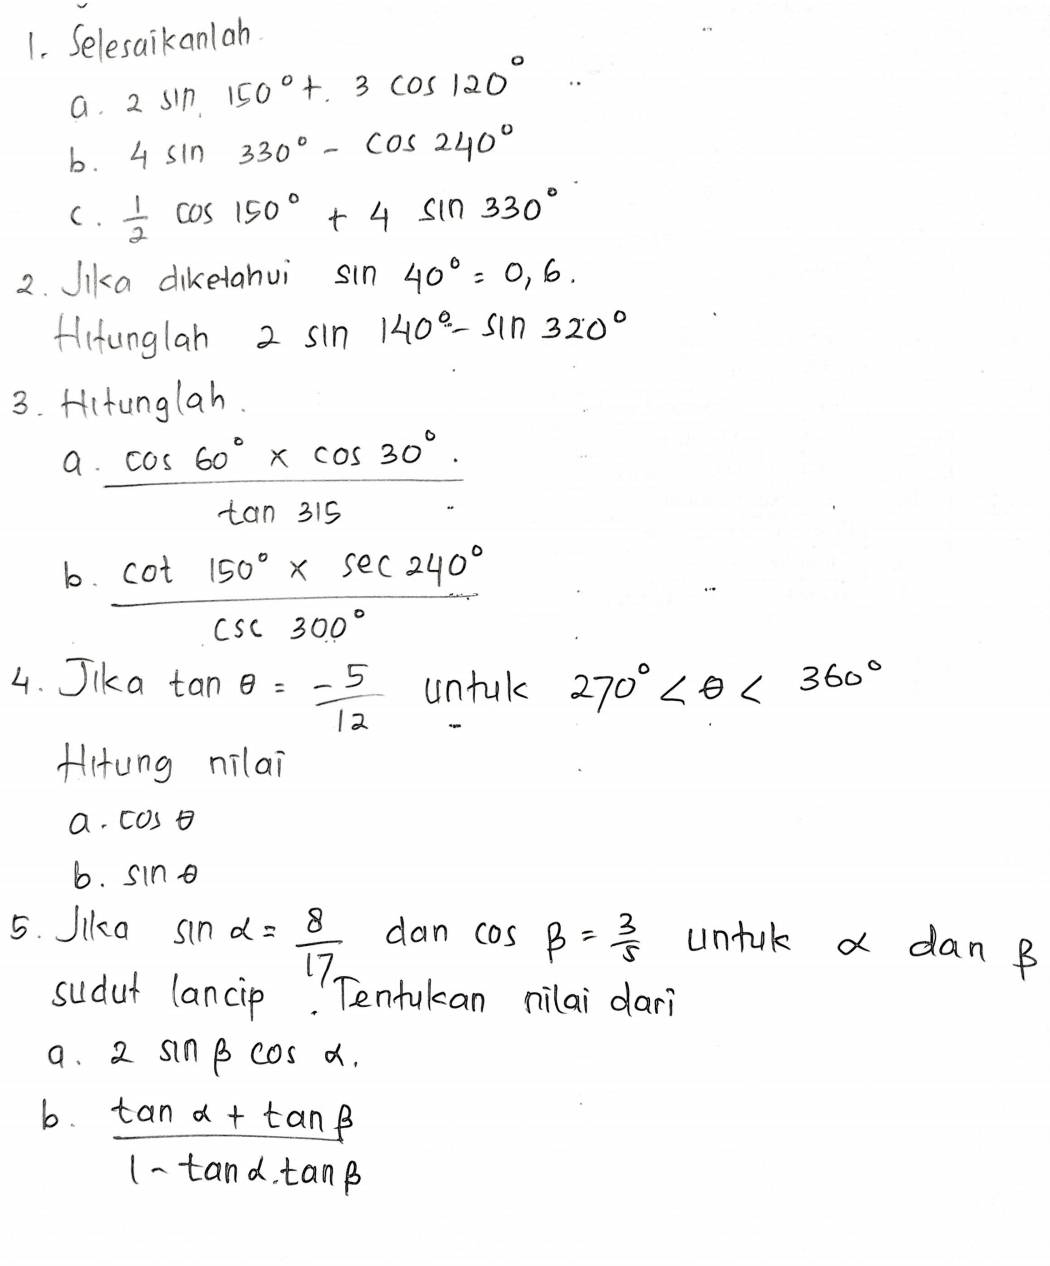 1. Selesaikanlah
a. 2 sin 150° + 3 cos 120°
b. 4 sin 330° - cos 240°
c. 1/2 cos 150° + 4 sin 330°
2. Jika diketahui sin 40° = 0,6.
Hitunglah 2 sin 140° - sin 320°
3. Hitunglah.
a. cos 60° x cos 30°.
tan 315
b. cot 150° x sec 240°
csc 300°
4. Jika tan θ = -5/12 untuk 270° < θ < 360°
Hitung nilai
a. cos θ
b. sin θ
5. Jika sin α = 8/17 dan cos β = 3/5 untuk α dan β
sudut lancip. Tentukan nilai dari
a. 2 sin β cos α.
b. tan α + tan β
1 - tan α . tan β